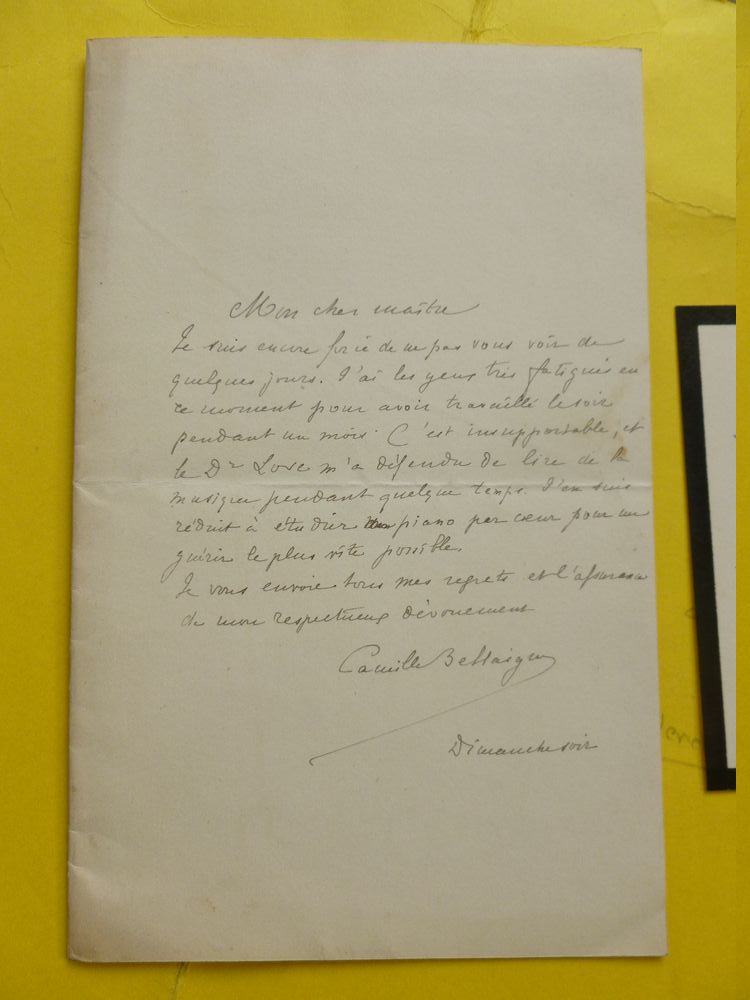 Mon cher maître
Je suis encore forcé de ne pas vous voir de
quelques jours. J'ai les yeux très fatigués en
ce moment pour avoir travaillé le soir
pendant un mois. C'est insupportable, et
le Dr m'a défendu de lire de la
musique pendant quelque temps. J'en suis
réduit à étudier mon piano par cœur pour me
guérir le plus vite possible.
Je vous envoie tous mes regrets et l'assurance
de mon respectueux dévouement
Camille Bellaigue
Dimanche soir